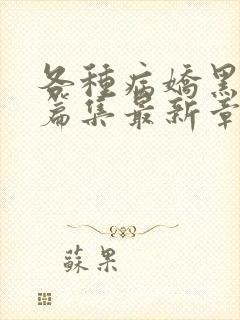 各種病嬌黑
篇集最新章
蘇果